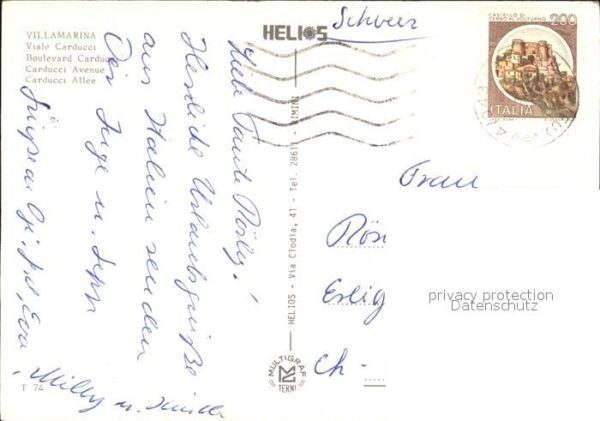 VILLAMARINA
Viale Carducci
Boulevard Carducci
Carducci Avenue
Carducci Allee
Lieb Tante Rösly!
Herzliche Urlaubsgrüße
aus Italien senden
Dir Inge u. Sepp
Milly u. Kinder
T 74
HELIOS
HELIOS - Via Clodia, 41 - Tel. 28611 - RIMINI
MULTIGRAF
TERNI
Schweiz
CASTELLO DI
CERRO AL VOLTURNO
200
ITALIA
Frau
Rös
Erlig
Ch -
privacy protection
Datenschutz